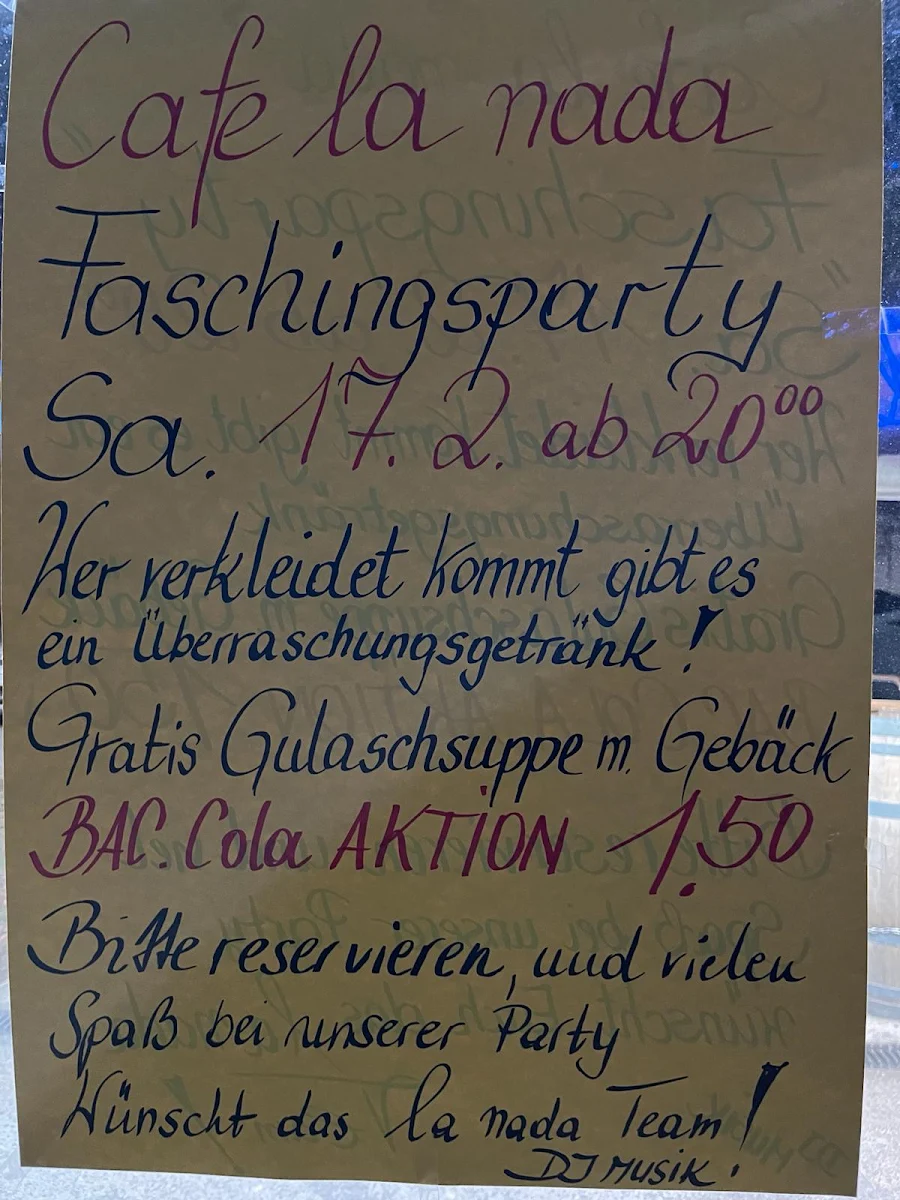 Cafe la nada
Faschingsparty
Sa. 17. 2. ab 20⁰⁰
Wer verkleidet kommt gibt es
ein Überraschungsgetränk!
Gratis Gulaschsuppe m. Gebäck
BAC. Cola AKTION 1,50
Bitte reservieren, und vielen
Spaß bei unserer Party
Wünscht das la nada Team!
DJ MUSIK!